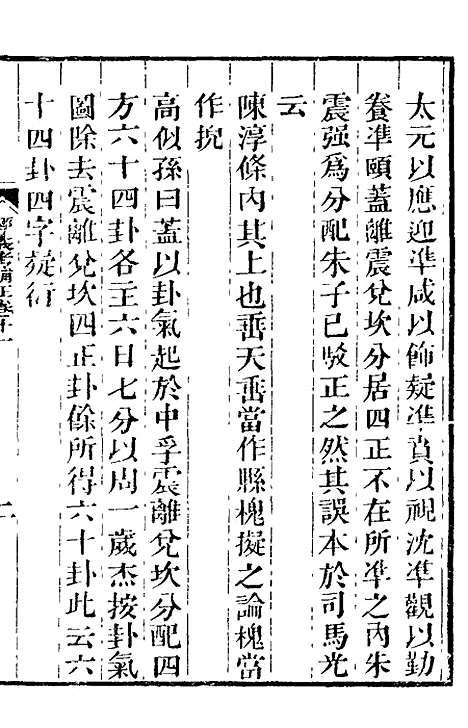 太元以應迎準咸以飾疑準賁以視沈準觀以勤
養準頤蓋離震兌坎分居四正不在所準之內朱
震强爲分配朱子已駁正之然其誤本於司馬光
云
陳淳條內其上也垂天垂當作縣槐擬之論槐當
作掜
高似孫曰蓋以卦氣起於中孚震離兌坎分配四
方六十四卦各主六日七分以周一歲杰按卦氣
圖除去震離兌坎四正卦餘所得六十卦此云六
十四卦四字疑衍